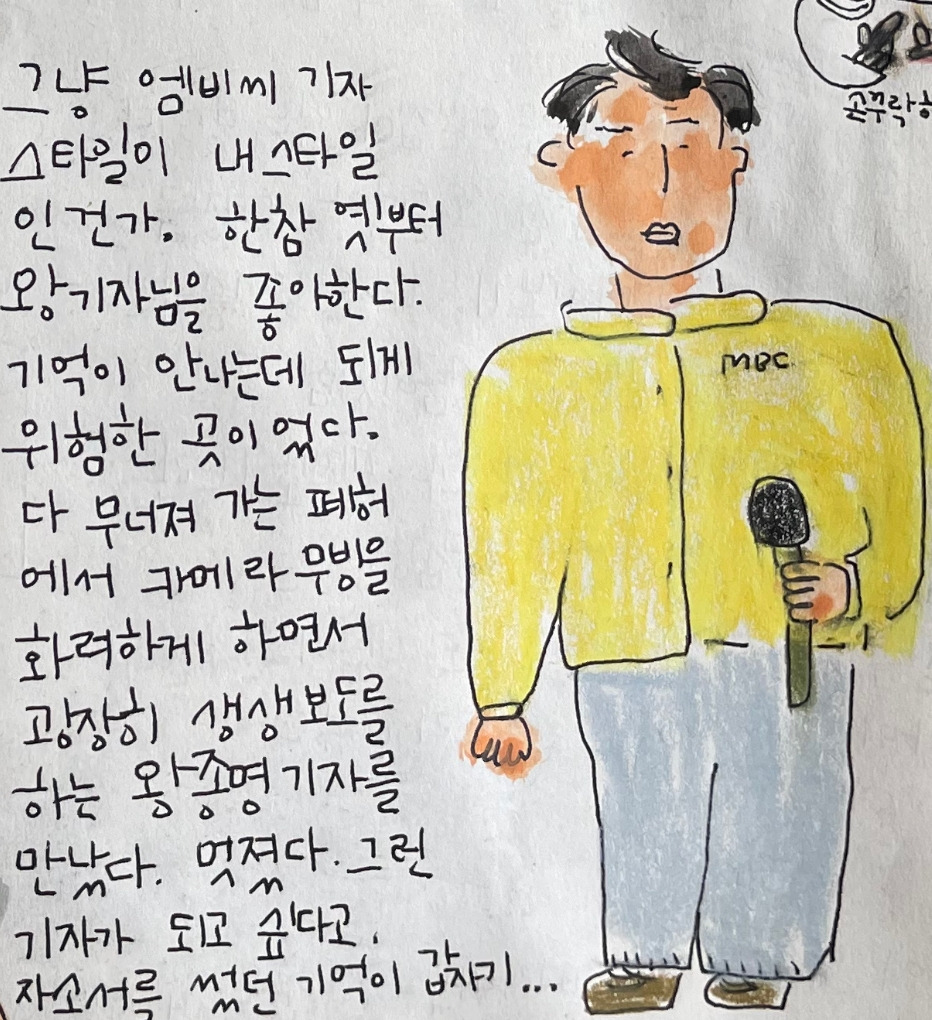 그냥 엠비씨 기자
스타일이 내 스타일
인 건가. 한참 옛부터
왕기자님을 좋아한다.
기억이 안나는데 되게
위험한 곳이었다.
다 무너져 가는 폐허
에서 카메라 무빙을
화려하게 하면서
굉장히 생생보도를
하는 왕종명 기자를
만났다. 멋졌다. 그런
기자가 되고 싶다고.
자소서를 썼던 기억이 갑자기...
MBC